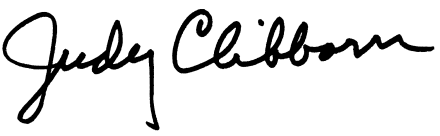 Judy Clibborn